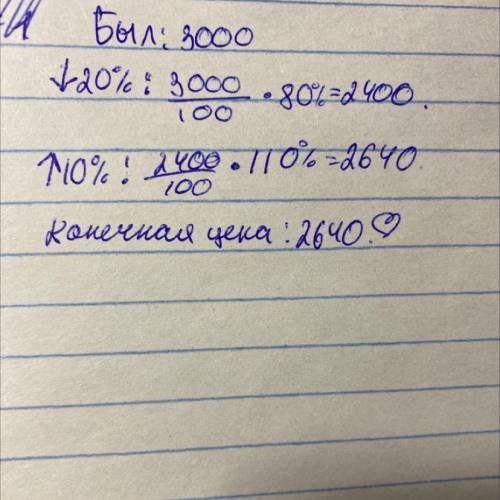 Был: 3000
↓20%: 3000/100 • 80%=2400.
↑10%: 2400/100 • 110%=2640.
Конечная цена: 2640.♡